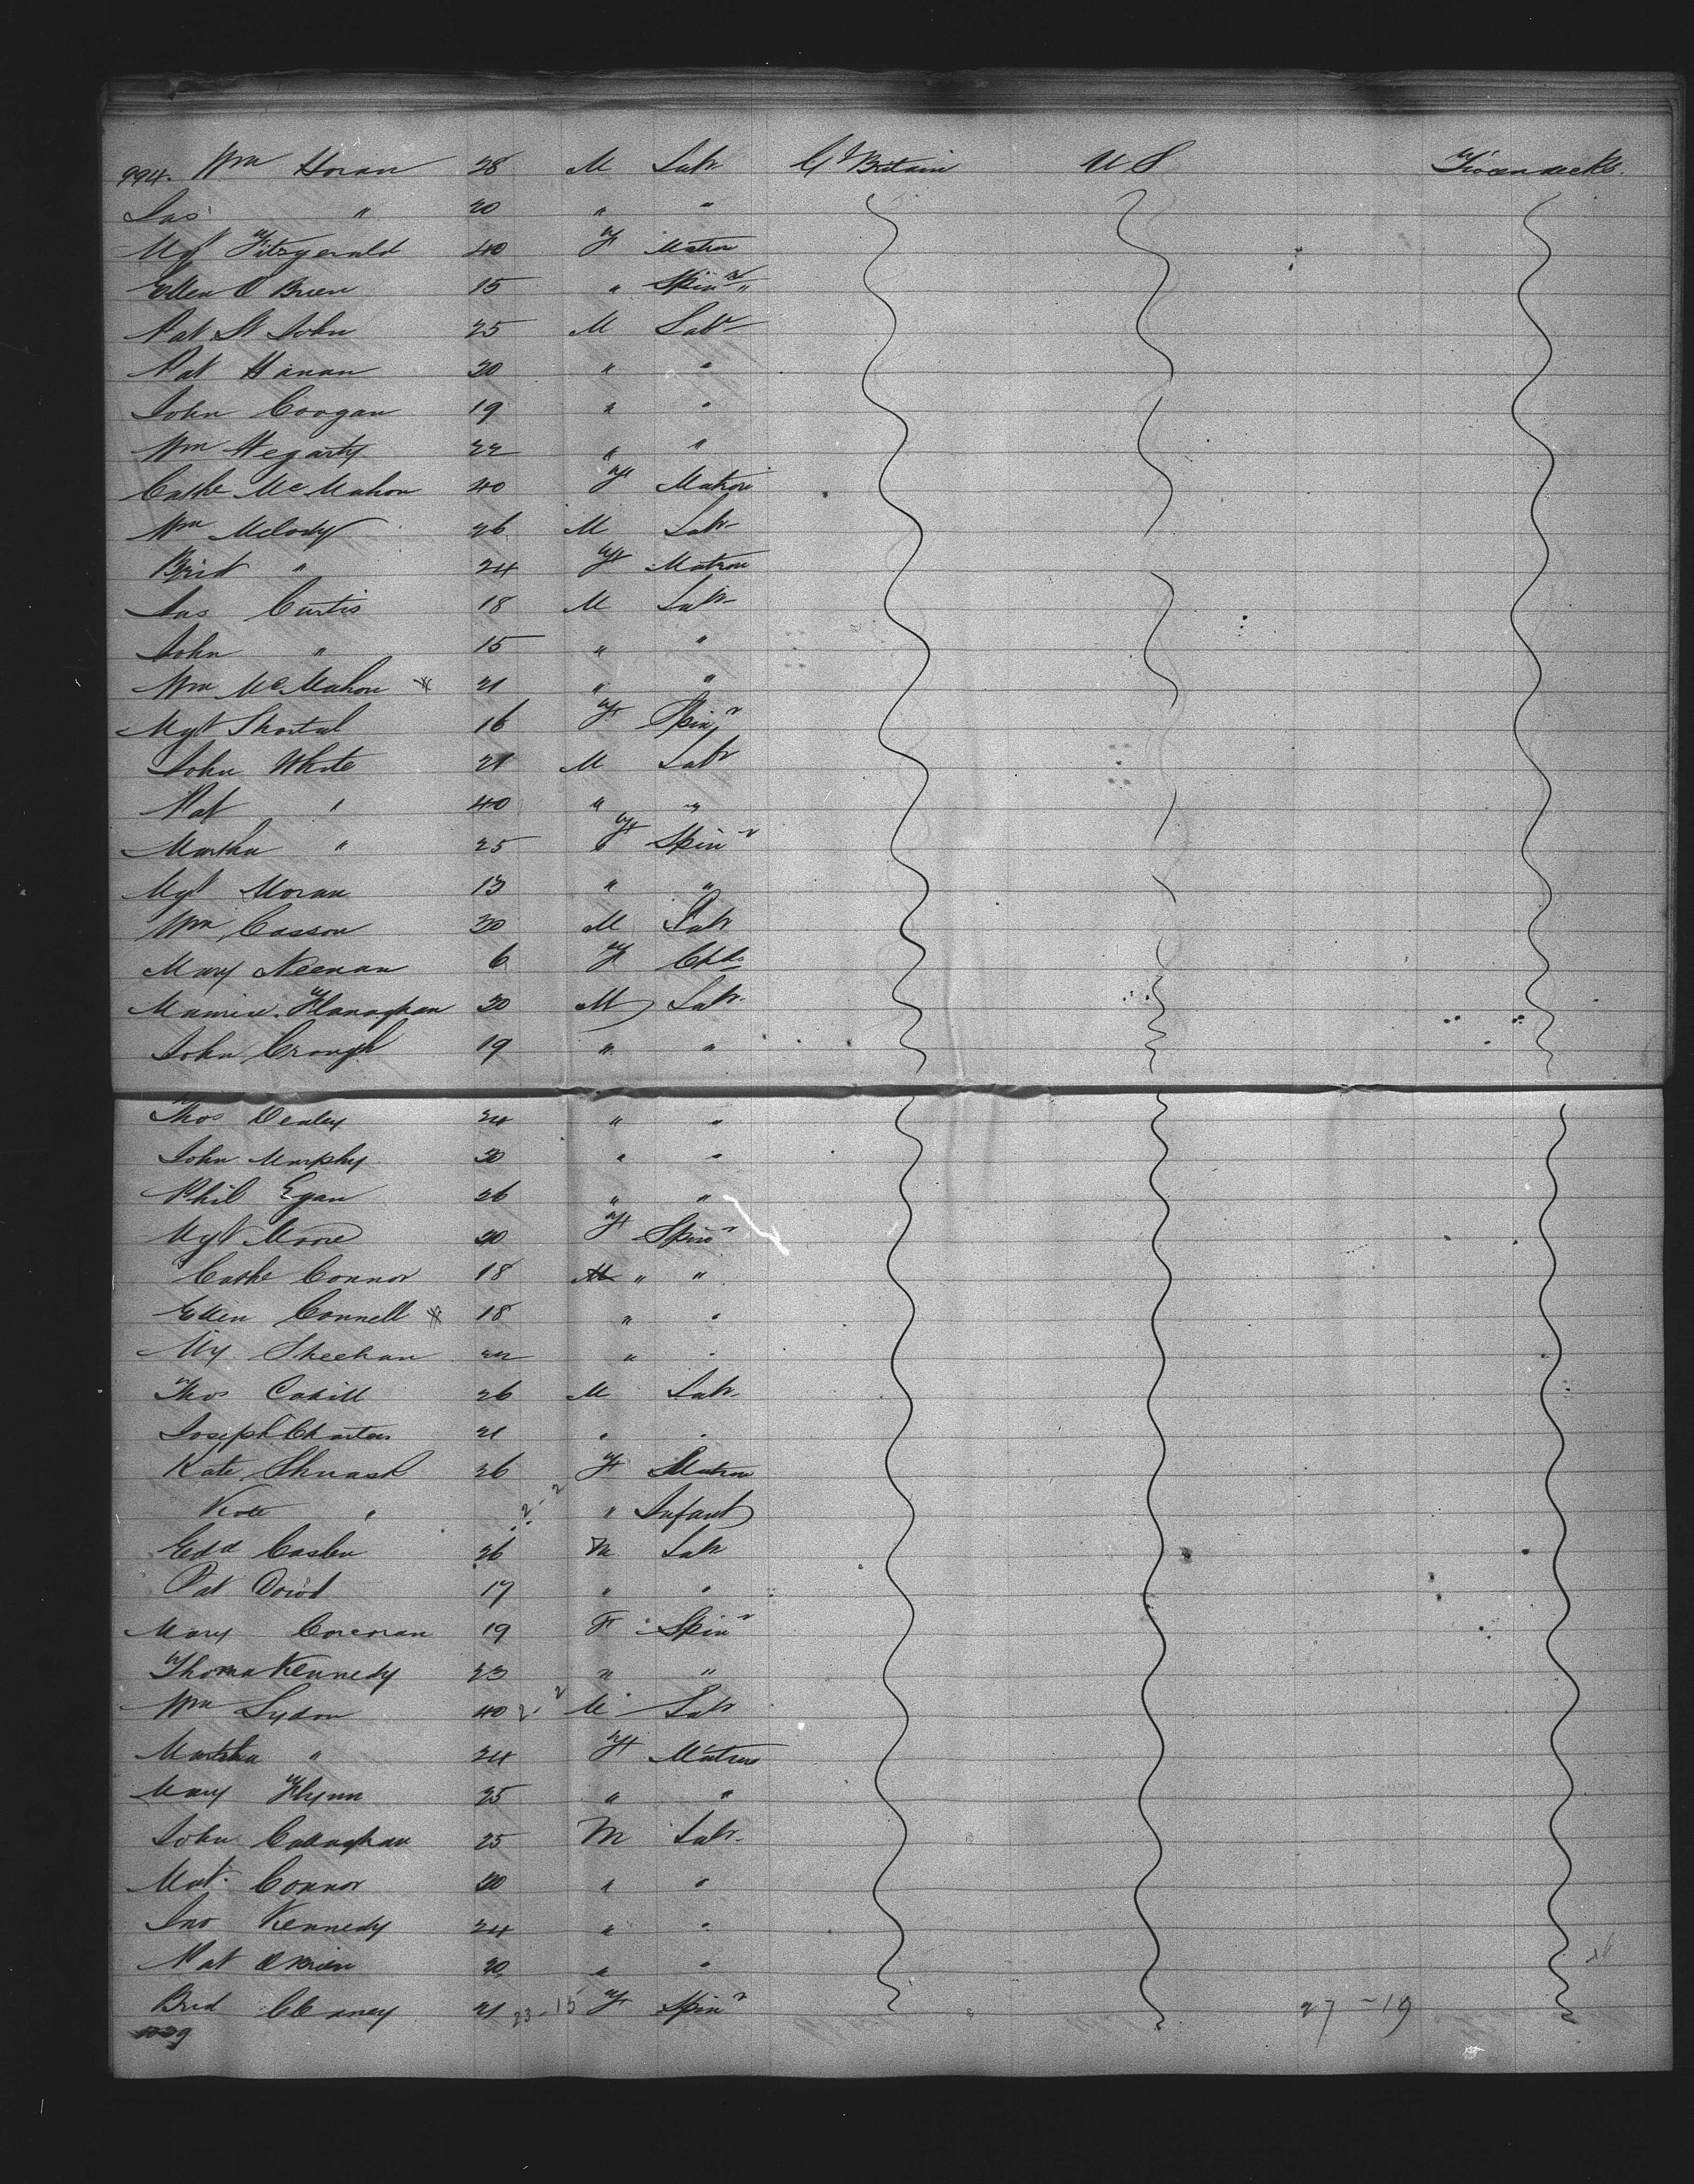 994. Wm Horan 28 M Labr Gt Britain U S Tweendecks.
Jas " 20 " "
Mgt Fitzgerald 40 F Matron
Ellen O Brien 15 " Spinr "
Pat St John 25 M Labr
Pat Hanan 20 " "
John Coogan 19 " "
Wm Hegarty 22 " "
Cathe McMahon 40 F Matron
Wm Melody 26 M Labr
Brid " 24 F Matron
Jas Curtis 18 M Labr
John " 15 " "
Wm McMahon 21 " "
Mgt Shortal 16 F Spinr
John White 21 M Labr
Pat " 40 " "
Martha " 25 F Spinr
Mgt Moran 13 " "
Wm Casson 30 M Labr
Mary Keenan 6 F Child
Maurice Flanaghan 30 M Labr
John Crough 19 " "
Thos Dealey 24 " "
John Murphy 30 " "
Phil Egan 26 " "
Mgt Moore 20 F Spinr
Cathe Connor 18 " "
Ellen Connell 18 " "
My Sheehan 22 " "
Thos Cahill 26 M Labr
Joseph Charters 21 " "
Kate 26 F Matron
Kate " 2-2 " Infant
Edd Caslen 26 M Labr
Pat Dowd 17 " "
Mary Corcoran 19 F Spinr
Thoma Kennedy 23 " "
Wm Lydon 40 2-2 M Labr
Martha " 24 F Matron
Mary Flynn 25 " "
John Callaghan 25 M Labr
Mat. Connor 20 " "
Jno Kennedy 24 " "
Pat O Brien 20 " "
Brid Clancy 21 23-15 F Spinr 27-19
1039